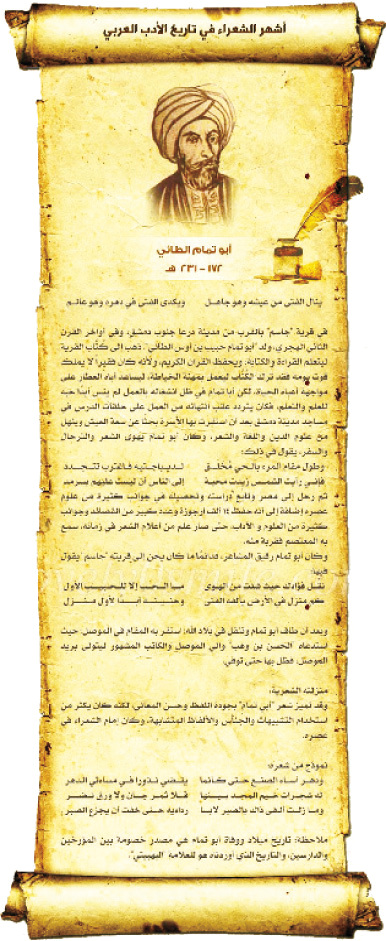 أشهر الشعراء في تاريخ الأدب العربي
أبو تمام الطائي
١٧٢ - ٢٣١ هـ
ينال الفتى من عيشه وهو جاهل ويكدى الفتى في دهره وهو عالم
في قرية "جاسم" بالقرب من مدينة درعا جنوب دمشق، وفي أواخر القرن
الثاني الهجري، ولد "أبو تمام حبيب بن أوس الطائي" ذهب إلى كتّاب القرية
ليتعلم القراءة والكتابة، ويحفظ القرآن الكريم، ولأنه كان فقيراً لا يملك
قوت يومه فقد ترك الكُتّاب ليعمل بمهنة الخياطة، ليساعد أباه العطار على
مواجهة أعباء الحياة، لكن أبا تمام في ظل انشغاله بالعمل لم ينس أبداً حبه
للعلم والتعلم، فكان يتردد عقب انتهائه من العمل على حلقات الدرس في
مساجد مدينة دمشق بعد أن استقرت بها الأسرة بحثاً عن سعة العيش وينهل
من علوم الدين واللغة والشعر، وكان أبو تمام يهوى الشعر والترحال
والسفر، يقول في ذلك:
وطول مقام المرء بالحي مُخلق لديباجتيه فاغترب تتجدد
فإني رأيت الشمس زيدت محبة إلى الناس أن ليست عليهم بسرمد
ثم رحل إلى مصر وتابع دراسته وتحصيله في جوانب كثيرة من علوم
عصره إضافة إلى أنه حفظ ١٤ ألف أرجوزة وعدد كبير من القصائد وجوانب
كثيرة من العلوم و الآداب، حتى صار علم من أعلام الشعر في زمانه، سمع
به المعتصم فقربه منه.
وكان أبو تمام رقيق المشاعر، دائما ما كان يحن إلى قريته "جاسم" يقول
فيها:
نقل فؤادك حيث شئت من الهوى ما الحب إلا للحبيب الأول
كم منزل في الأرض يألفه الفتى وحنينه أبداً لأول منزل
وبعد أن طاف أبو تمام وتنقل في بلاد الله؛ استقر به المقام في الموصل، حيث
استدعاه "الحسن بن وهب" والي الموصل والكاتب المشهور ليتولى بريد
الموصل، فظل بها حتى توفي.
منزلته الشعرية:
وقد تميز شعر "أبي تمام" بجودة اللفظ وحسن المعاني، لكنه كان يكثر من
استخدام التشبيهات والجناس والألفاظ المتشابهة، وكان إمام الشعراء في
عصره.
نموذج من شعره:
ودهر أساء الصنع حتى كأنما يقضي نذورا في مساءتي الدهر
له شجرات خيم المجد بينها فلا ثمر جان ولا ورق نضر
وما زلت ألقى ذاك بالصبر لابسا رداءيه حتى خفت أن يجزع الصبر
ملاحظة: تاريخ ميلاد ووفاة أبو تمام هي مصدر خصومة بين المؤرخين
والدارسين، والتاريخ الذي أوردناه هو للعلامة "البهبيتي".